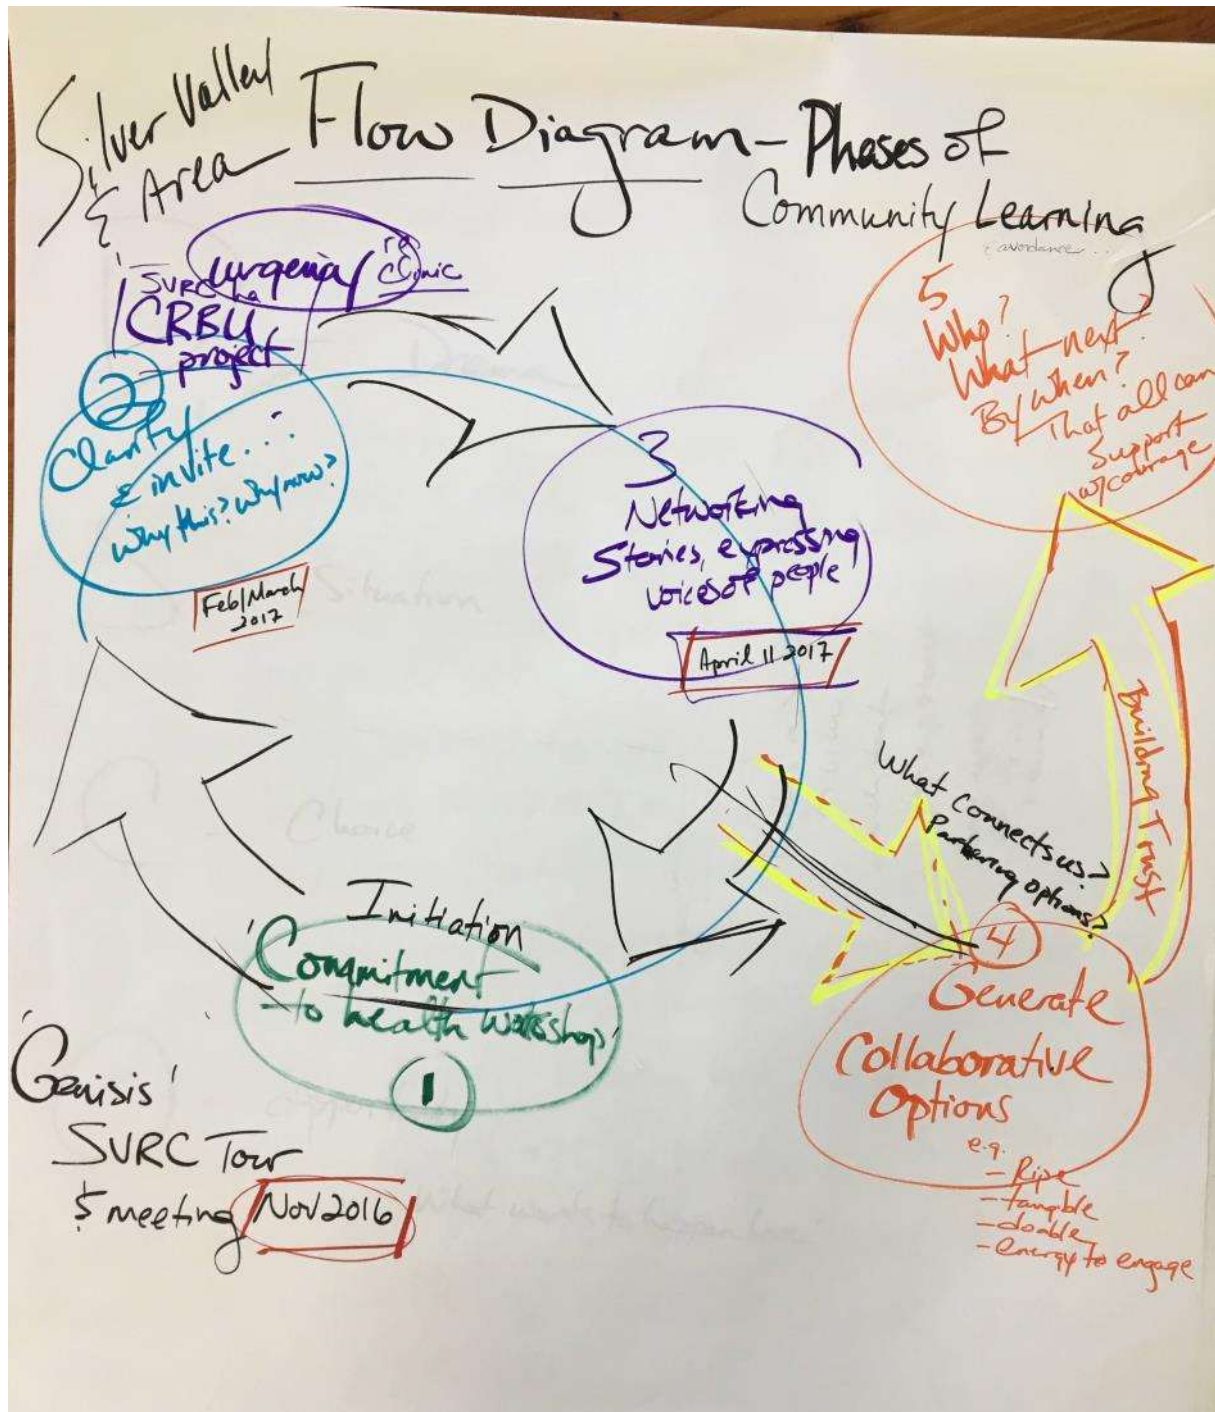 Silver Valley
& Area
Flow Diagram - Phases of
Community Learning
avoidance...
urgency / re
clinic
SVRC
CRBU
project
2
Clarity
& invite...
Why this? Why now?
Feb/March
2017
3
Networking
Stories, expressing
voices of people
April 11 2017
5
Who?
What next?
By when?
That all can
Support
w/courage
Building Trust
What connects us?
Partnering options?
4
Generate
Collaborative
Options
e.g.
- Ripe
- tangible
- doable
- energy to engage
Initiation
'Commitment
to health workshop'
1
'Genisis'
SVRC Tour
& meeting Nov 2016
Situation
Choice
What wants to happen here